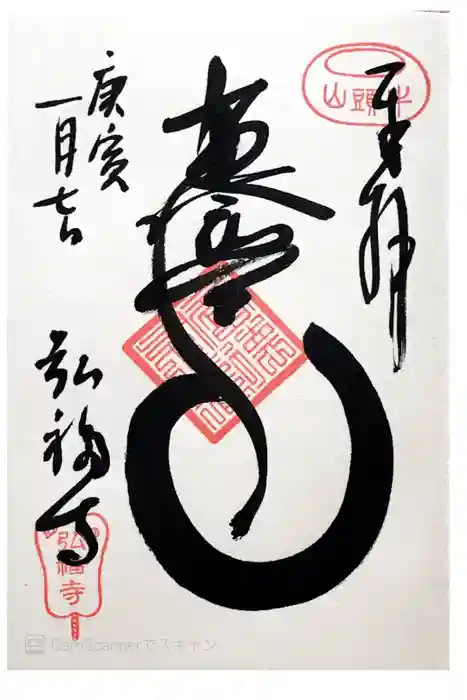 牛頭山
奉拝
庚寅
一月七日
弘福寺
弘福寺
CamScannerでスキャン